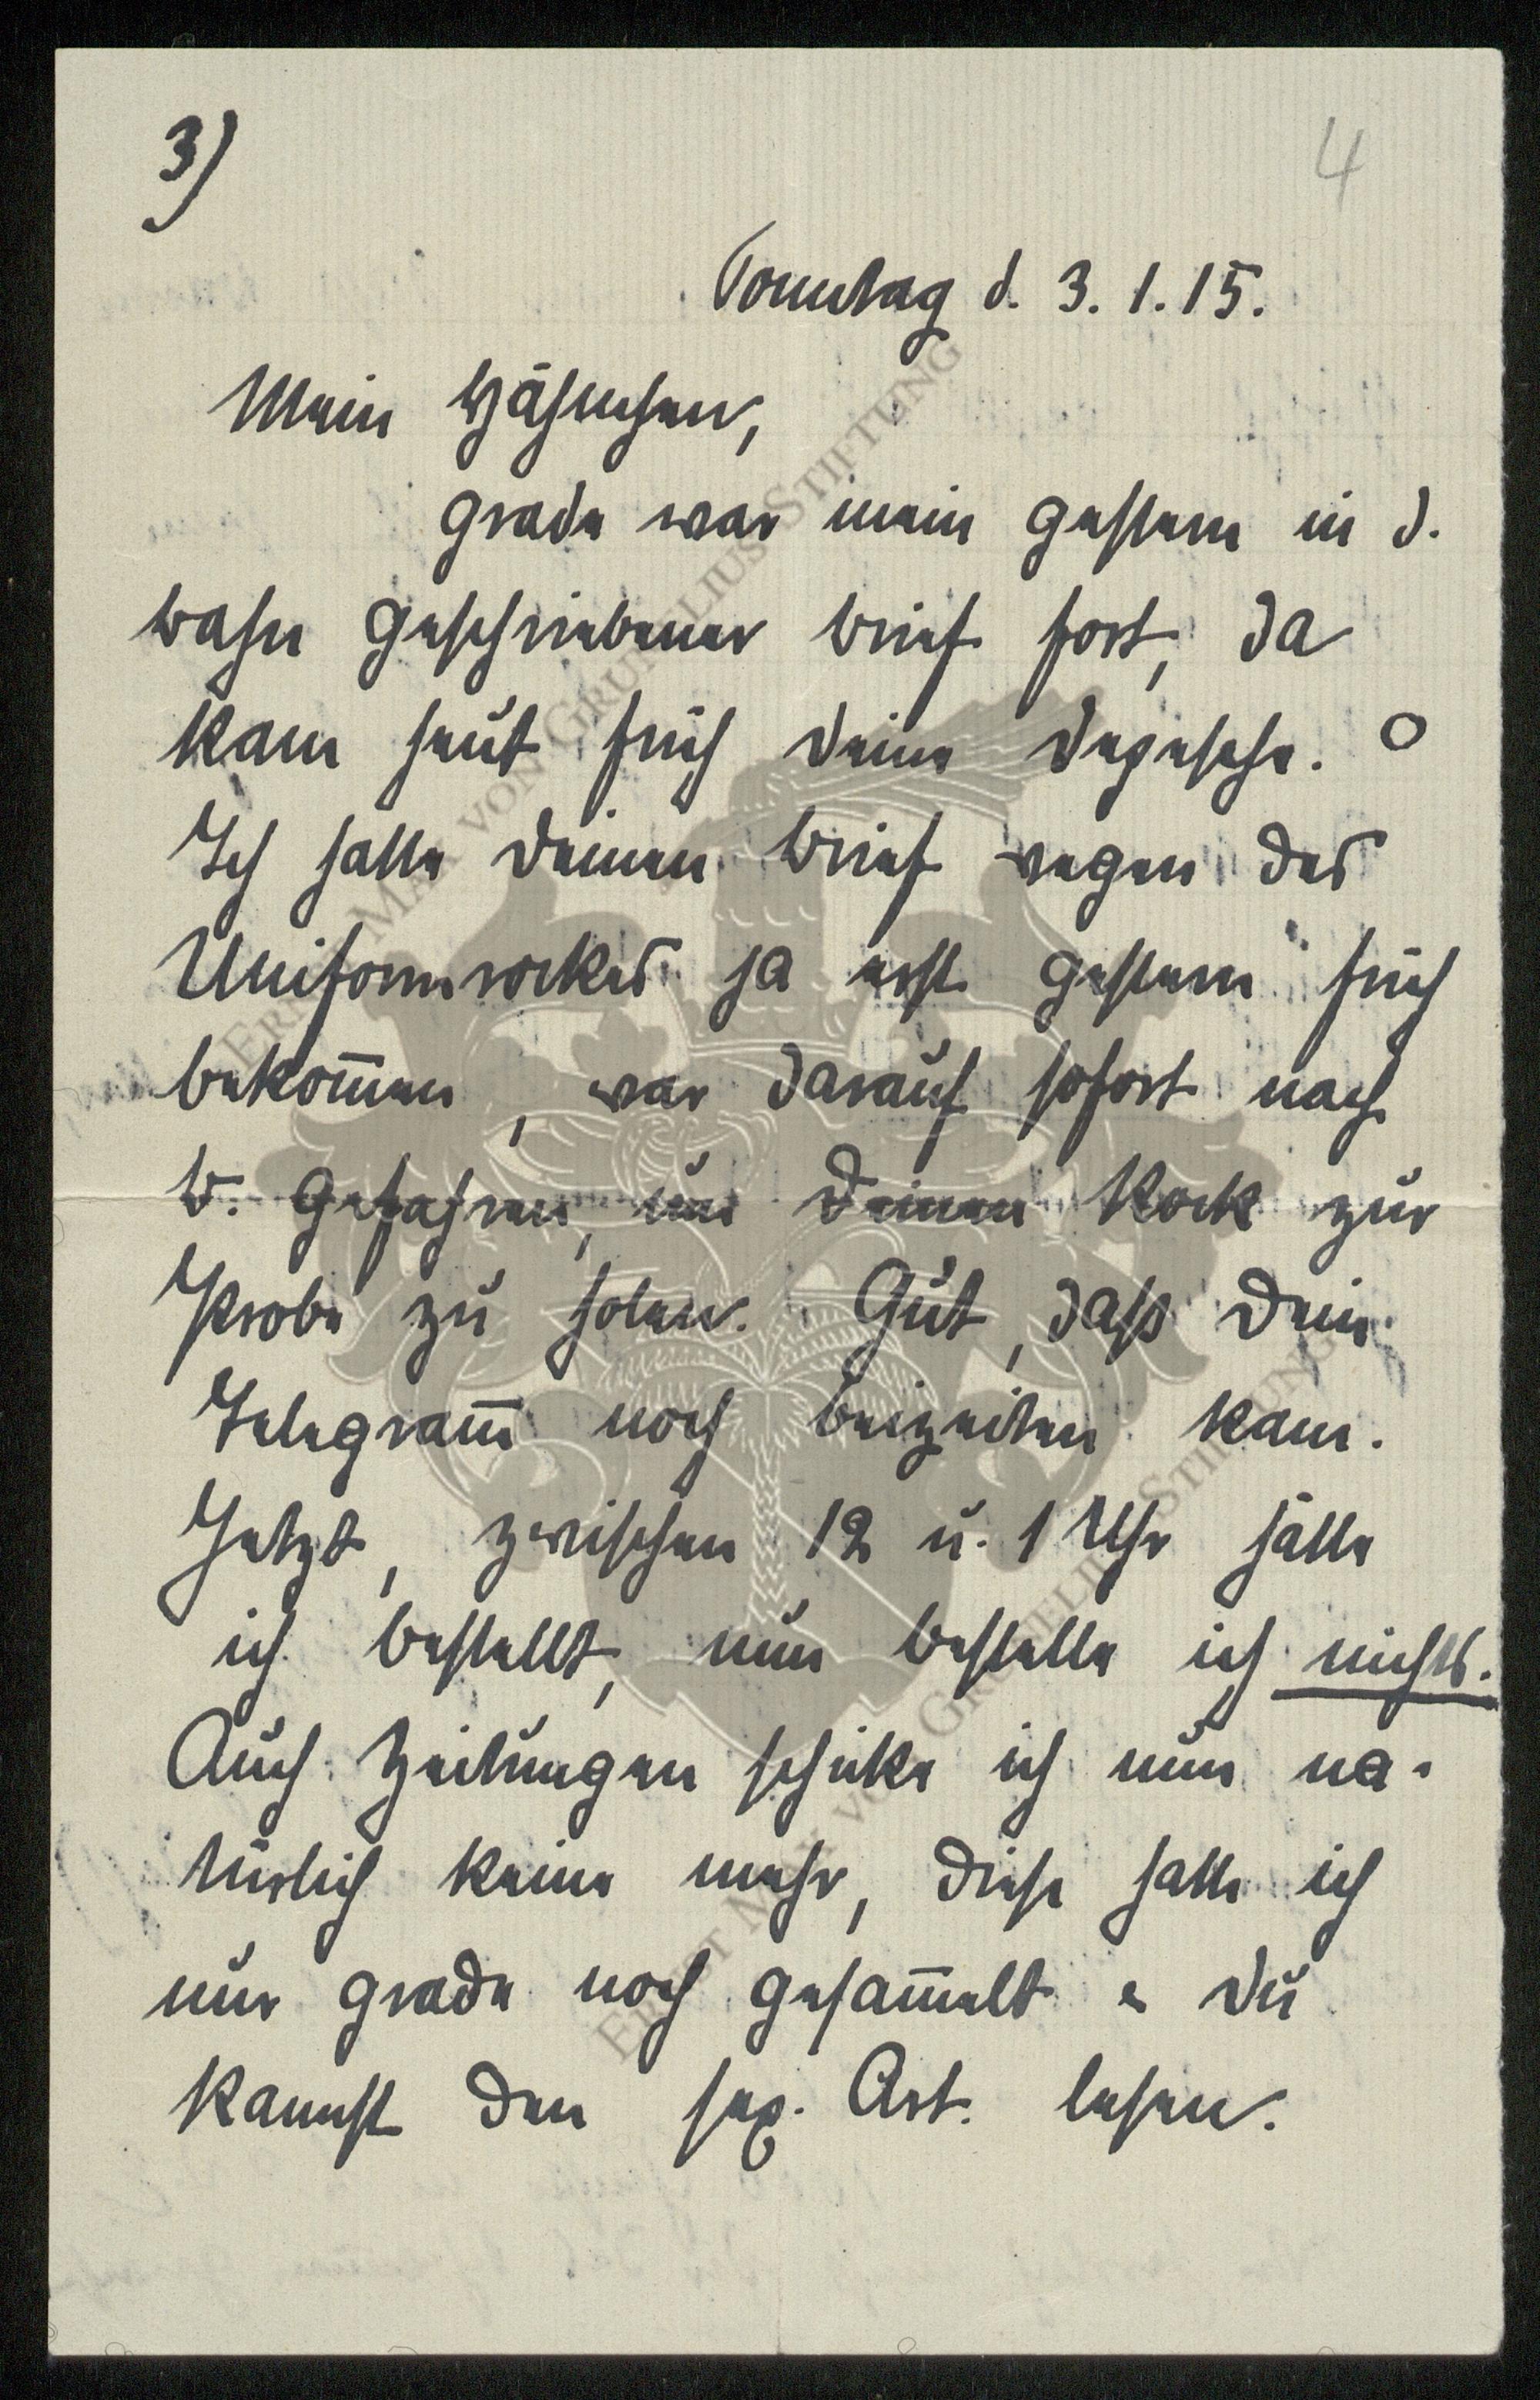 3)
4
Sonntag d. 3. 1. 15.
Mein Häschen,
grade war mein gestern in d.
Bahn geschriebener Brief fort, da
kam heut früh deine Depesche. O
Ich hatte deinen Brief wegen des
Uniformrockes ja erst gestern früh
bekom̅en, war darauf sofort nach
B. gefahren, um deinen Rock zur
Probe zu holen. Gut, dass dein
Telegram̅ noch beizeiten kam.
Jetzt, zwischen 12 u. 1 Uhr hätte
ich bestellt, nun bestelle ich nichts.
Auch Zeitungen schicke ich nun na-
türlich keine mehr, diese hatte ich
nur grade noch gesam̅elt & du
kannst den Art. lesen.
ERNST MAX VON GRUNELIUS-STIFTUNG
ERNST MAX VON GRUNELIUS-STIFTUNG